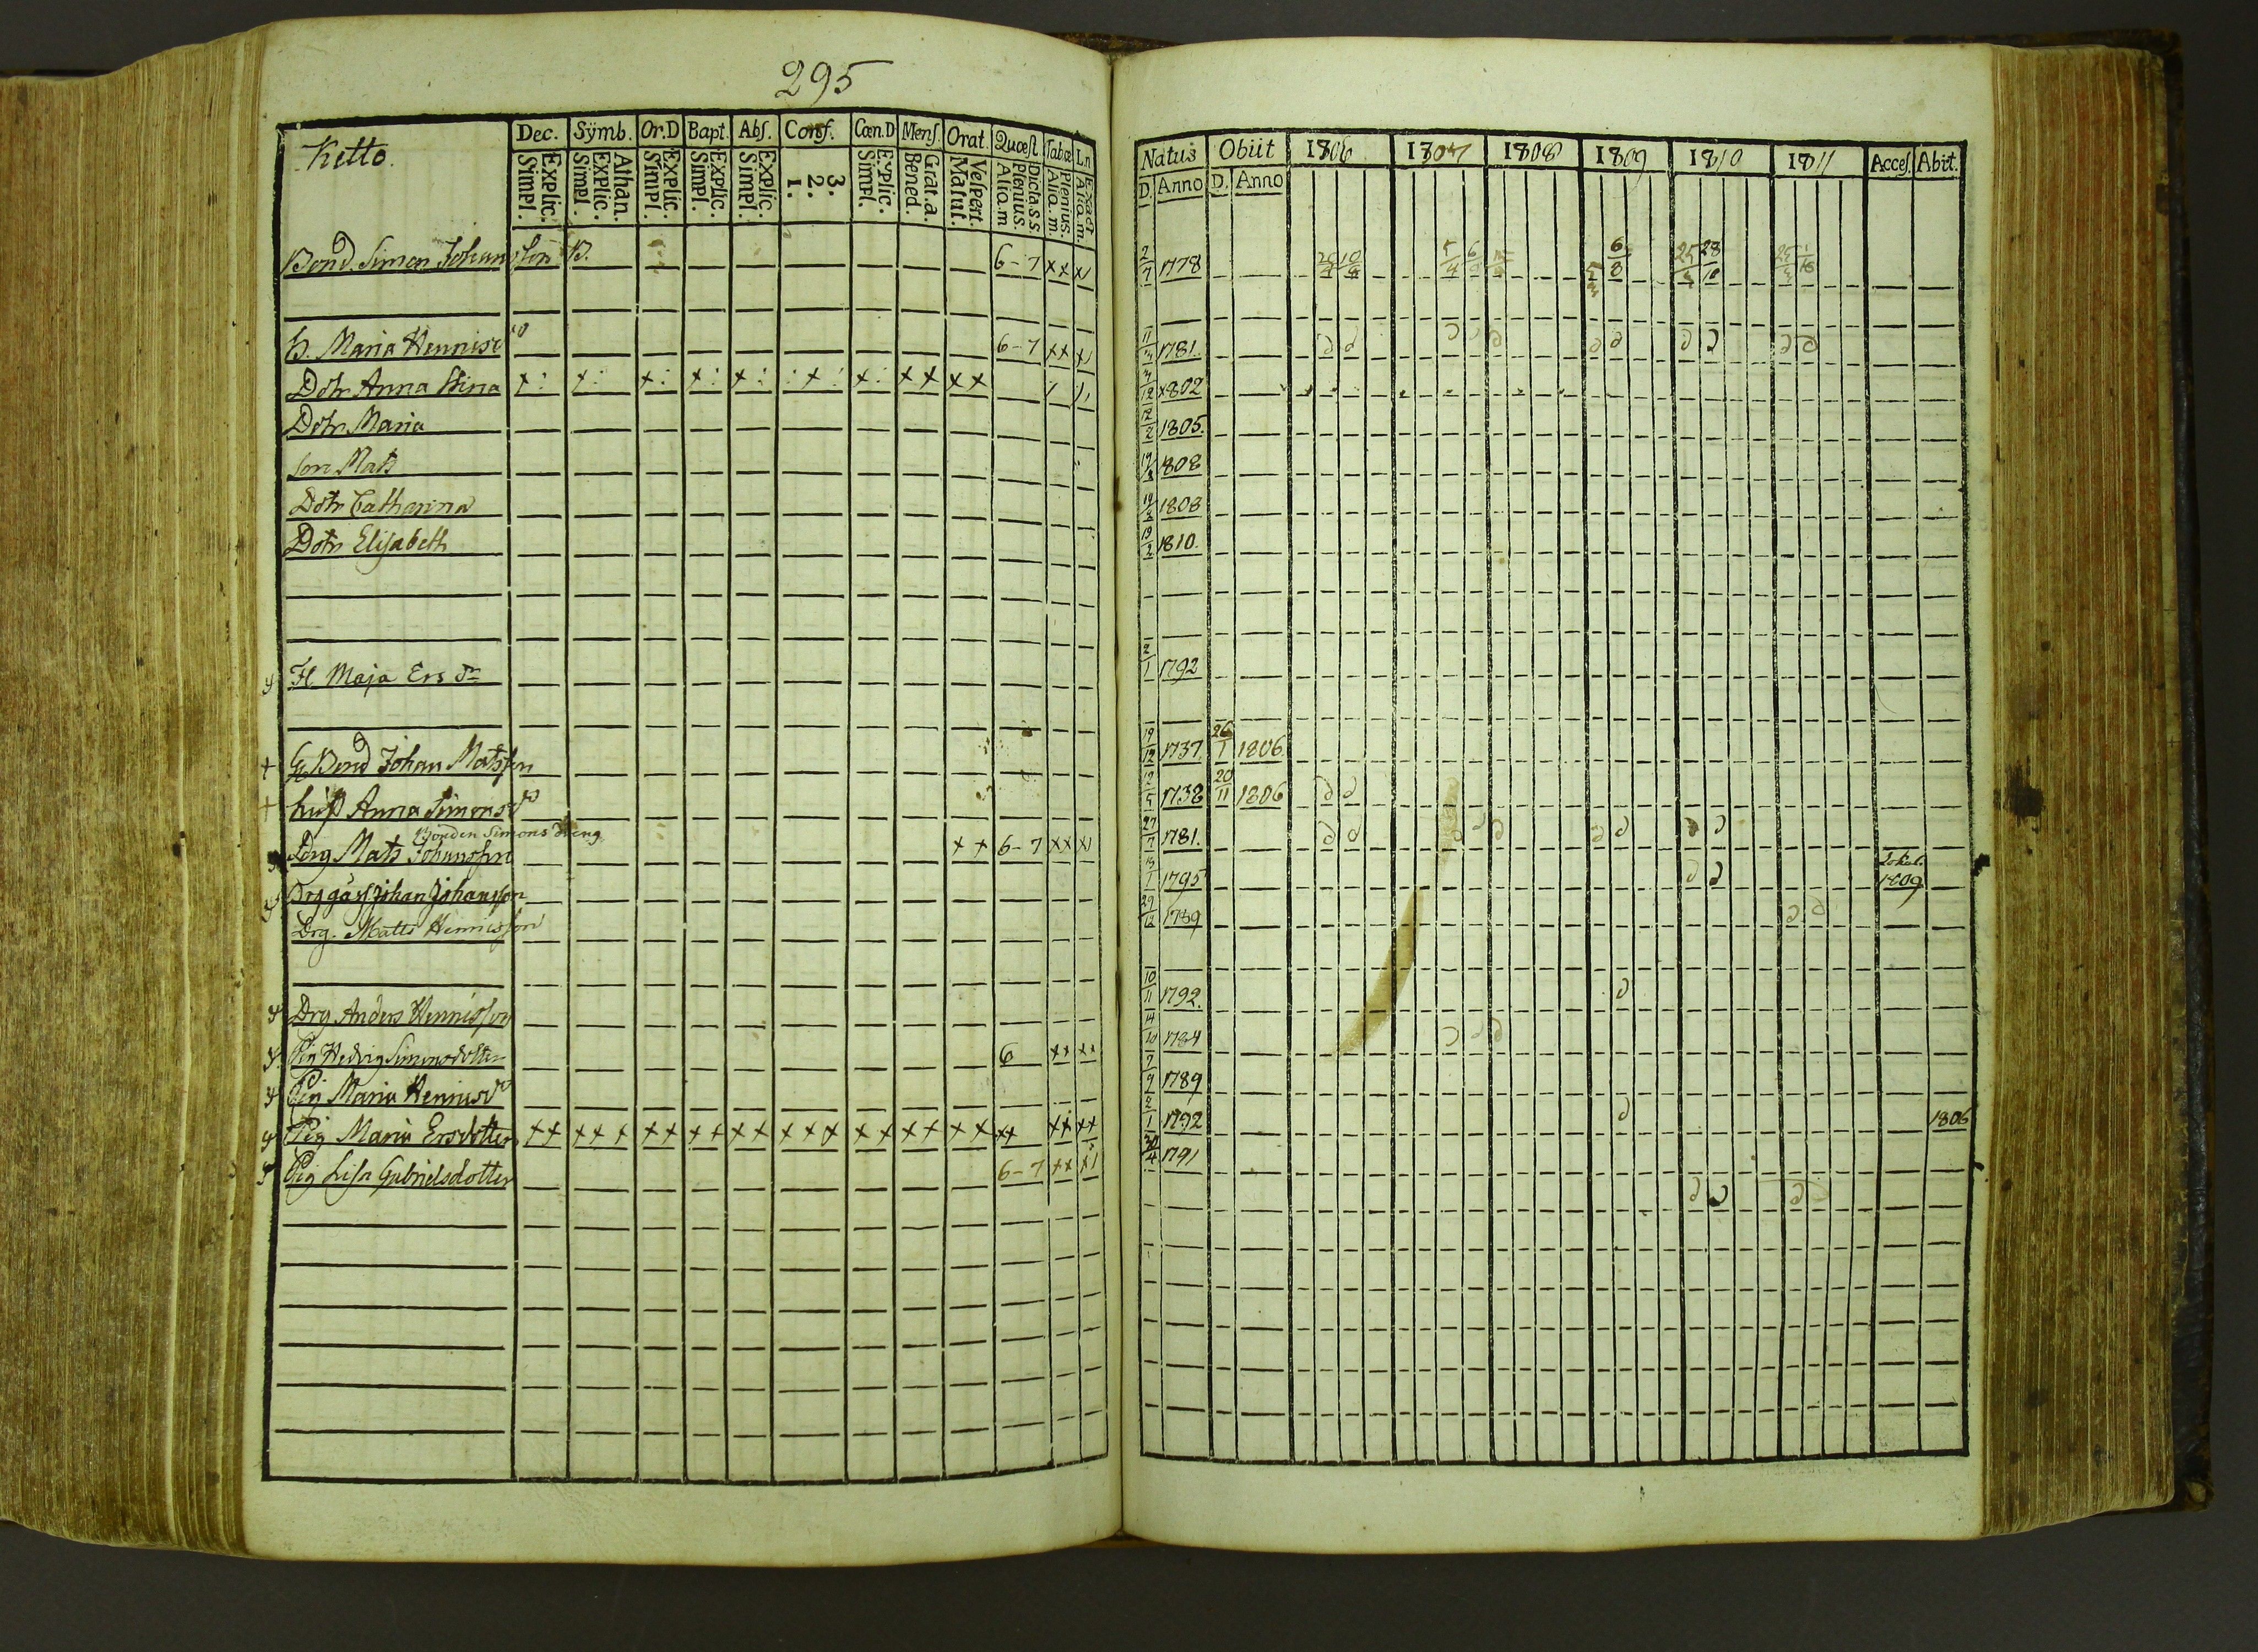 295
Ketto. Dec. Sÿmb. Or.D Bapt. Abſ. Conf. Cœn.D Menſ. Orat. Quœſt Tabœ Ln
Explic. Simpl. Athan. Explic. Simpl. Explic. Simpl. Explic. Simpl. Explic. Simpl. 3. 2. 1. Explic. Simpl. Grat.a. Bened. Veſpert. Matut. Dicta.s.s Plenius. Aliq.m Plenius. Aliq.m. Exact Aliq.m.
Bond. Simon Johansson B. 6-7 xx x/
H. Maria Hennisd:r 6-7 xx x/
Dotr Anna Stina x: x: x: x: x: :x: x: xx xx / /,
Dotr Maria
Son Mats
Dotr Catharina
Dotr Elisabeth
Fl Maja Ers dr
+ G. Bond Johan Matsson
+ Hust Anna Simonsd:r
Bonden Simons dreng
Drg Mats Johansson xx 6-7 xx x/
Drg gåss Johan Johansson
Drg. Matts Hennisson
Drg Anders Hennisson
Pig Hedvig Simonsdotter 6 xx xx
Pig Maria Hennisd:r
Pig Maria Ersdotter xx xxx xx xx xx xxx xx xx xx xx xx xx
Pig Lisa Gabrielsdotter 6-7 xx x/
Natus Obiit 1806 1807 1808 1809 1810 1811 Acceſ. Abit.
D. Anno D. Anno
2/7 1778 5/4 6/8 25/3 28/10
11/3 1781.
3/12 1802
12/2 1805.
1808
19/8 1808
19/2 1810.
2/1 1792
19/12 1737. 26/1 1806.
12/5 1738 20/11 1806
27/7 1781.
13/1 1795 1809
29/12 1789
10/11 1792.
14/10 1784
7/9 1789
2/1 1792 1806
30/4 1791